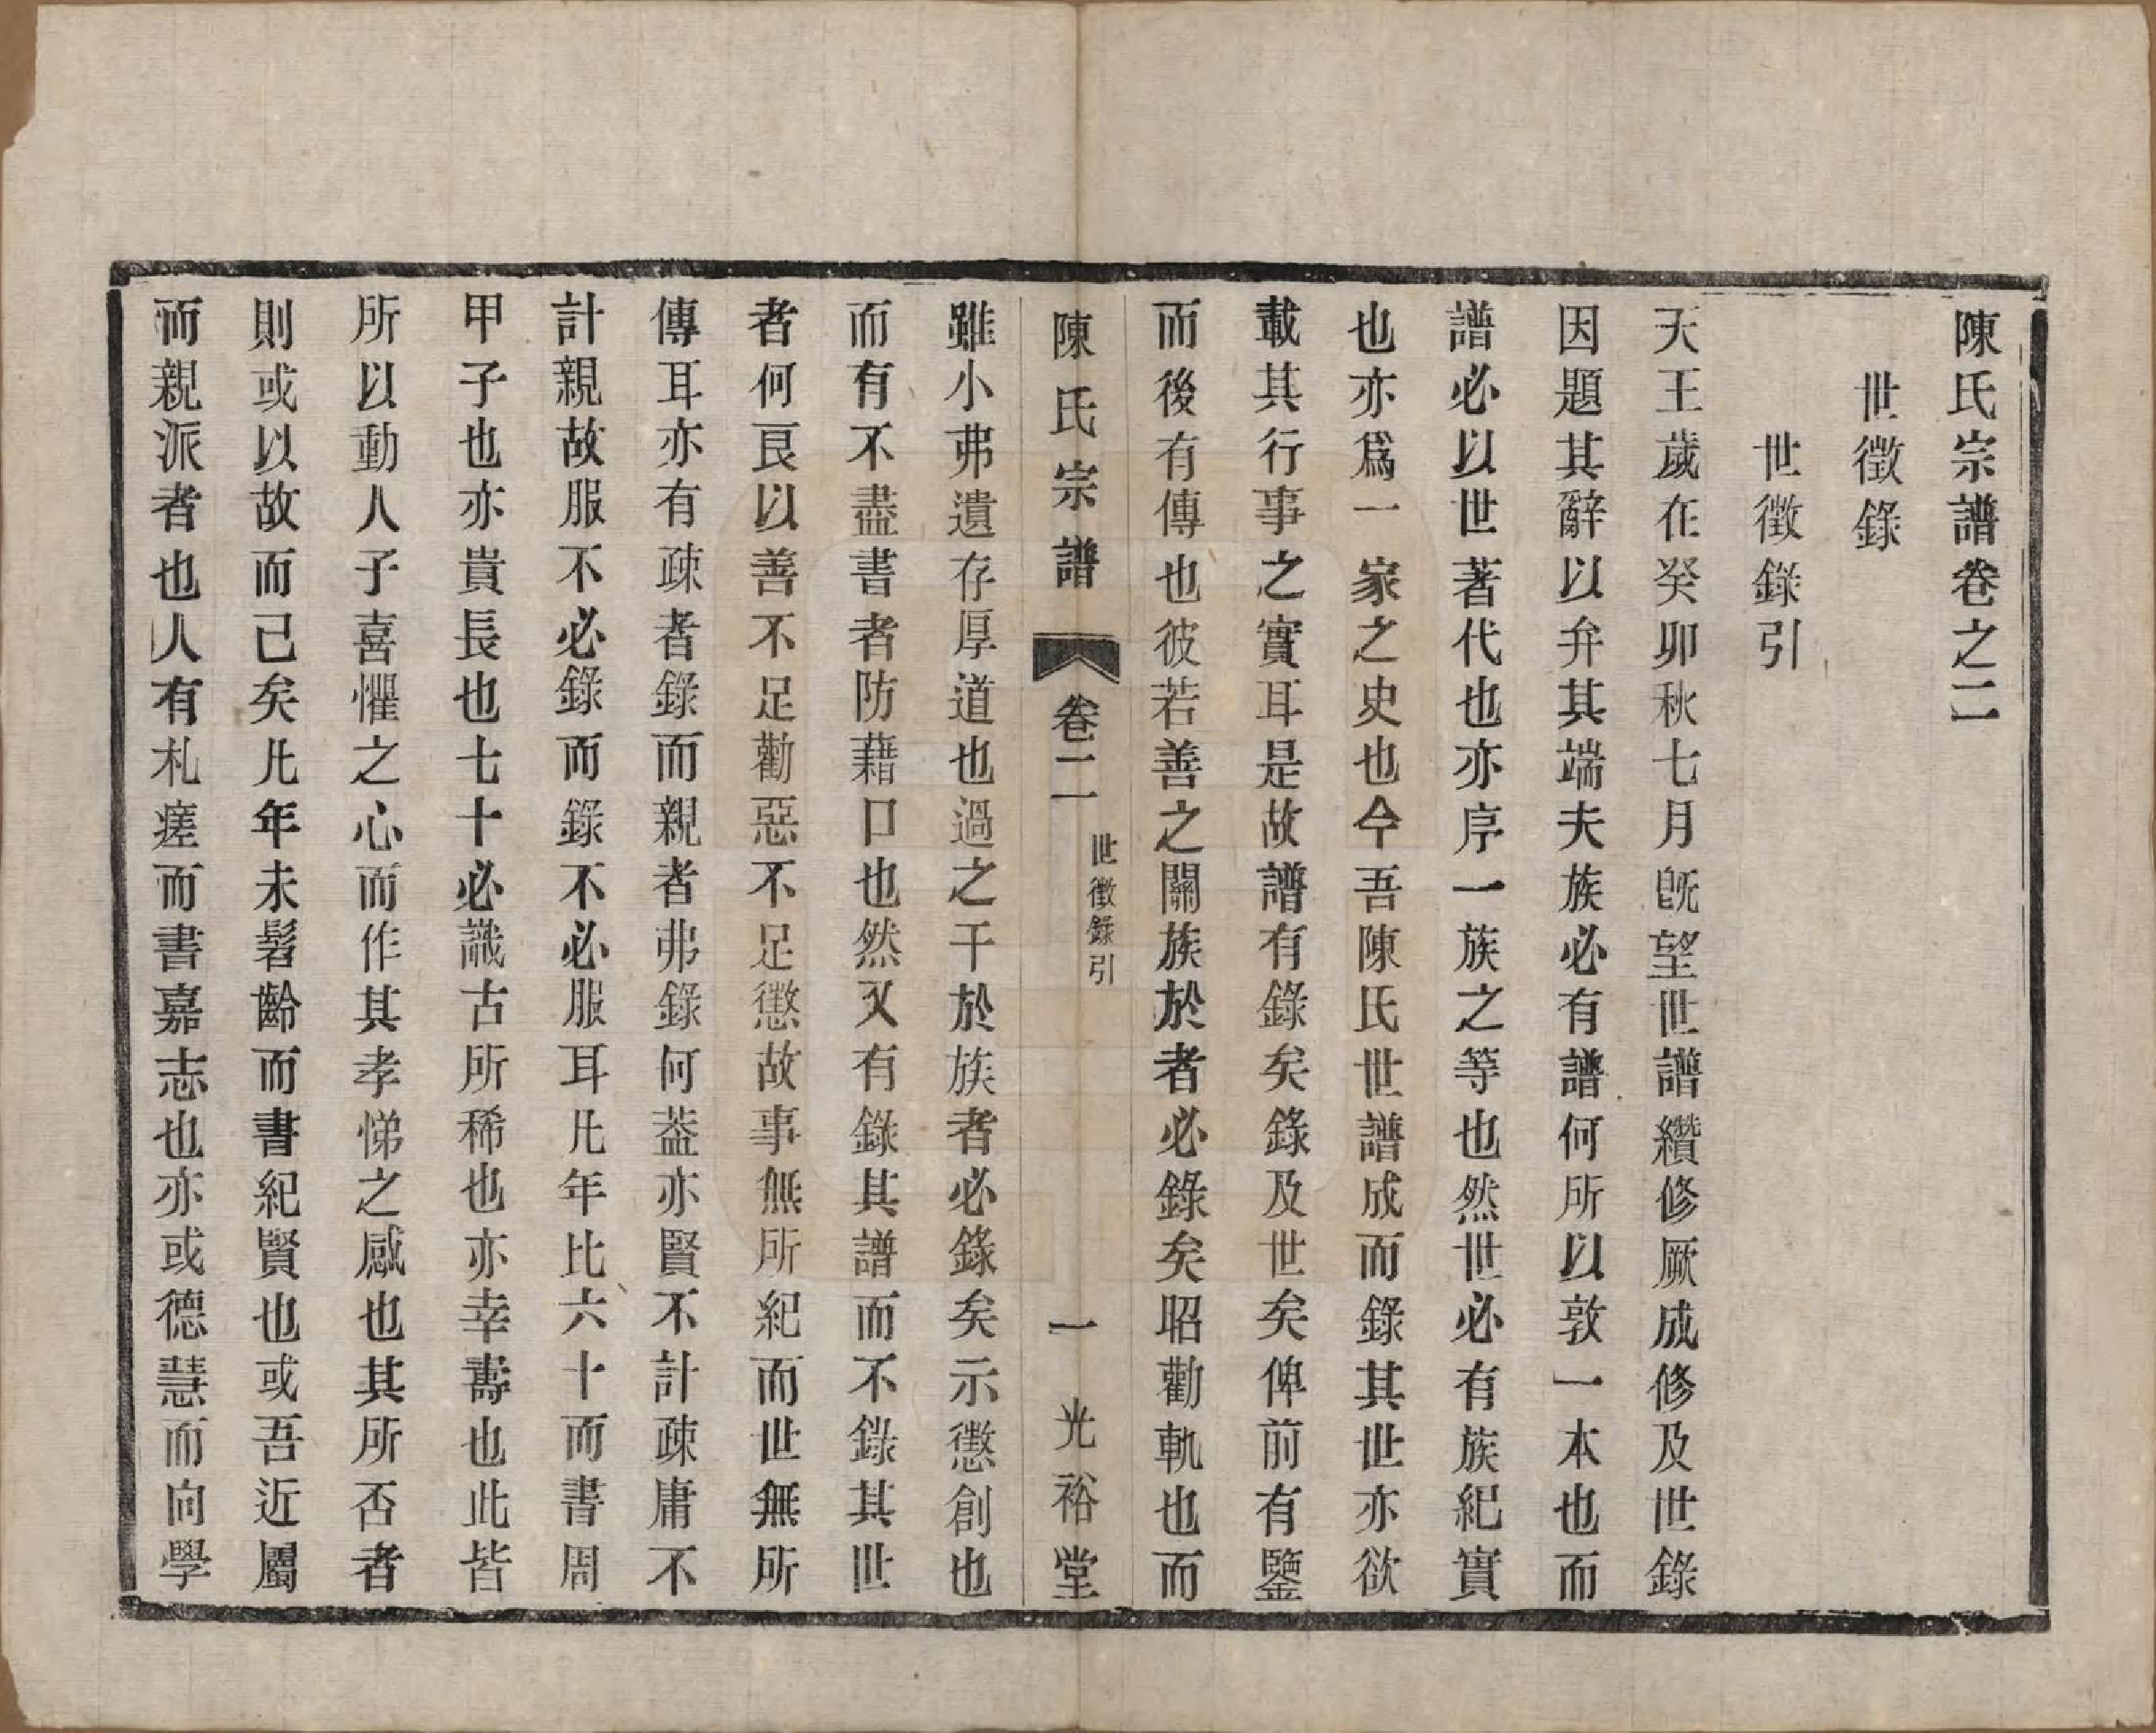 陳氏宗譜卷之二
世徵錄
世徵錄引
天王歲在癸卯秋七月旣望世譜纘修厥成修及世錄
因題其辭以弁其端夫族必有譜何所以敦一本也而
譜必以世著代也亦序一族之等也然世必有族紀實
也亦爲一家之史也今吾陳氏世譜成而錄其世亦欲
載其行事之實耳是故譜有錄矣錄及世矣俾前有鑒
而後有傳也彼若善之關族於者必錄矣昭勸軌也而
陳氏宗譜 卷二 世徵錄引 一 光裕堂
雖小弗遺存厚道也過之干於族者必錄矣示懲創也
而有不盡書者防藉口也然又有錄其譜而不錄其世
者何艮以善不足勸惡不足懲故事無所紀而世無所
傳耳亦有疎者錄而親者弗錄何葢亦賢不計疎庸不
計親故服不必錄而錄不必服耳凡年比六十而書周
甲子也亦貴長也七十必識古所稀也亦幸壽也此皆
所以動人子喜懼之心而作其孝悌之感也其所否者
則或以故而已矣凡年未髫齡而書紀賢也或吾近屬
而親派者也人有札瘥而書嘉志也亦或德慧而向學